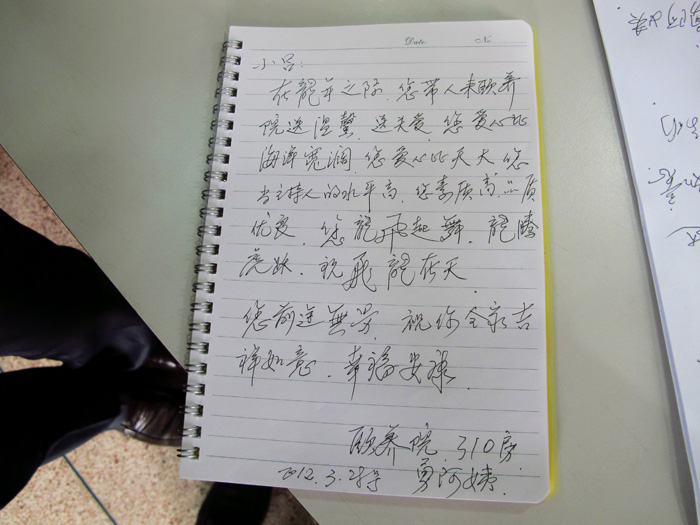 Date No
小吕:
在龍年之际,您带人来颐养
院送温馨,送关爱,您爱心比
海洋宽阔,您爱心比天大,您
当主持人的水平高,您素质高,品质
优良,您龍飛起舞,龍腾
虎跃,祝飛龍在天
您前途無量,祝你全家吉
祥如意,幸福安禄.
颐养院,310房
2012.3.28号 勇阿姨.